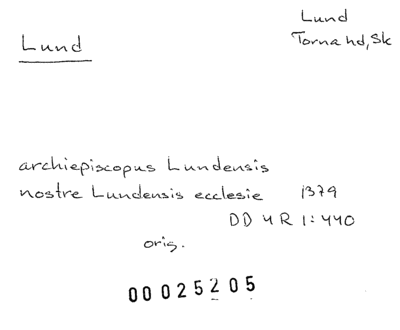 Lund
Lund
Torna hd, Sk
archiepiscopus Lundensis
nostre Lundensis ecclesie 1379
DD 4 R 1:440
orig.
00025205